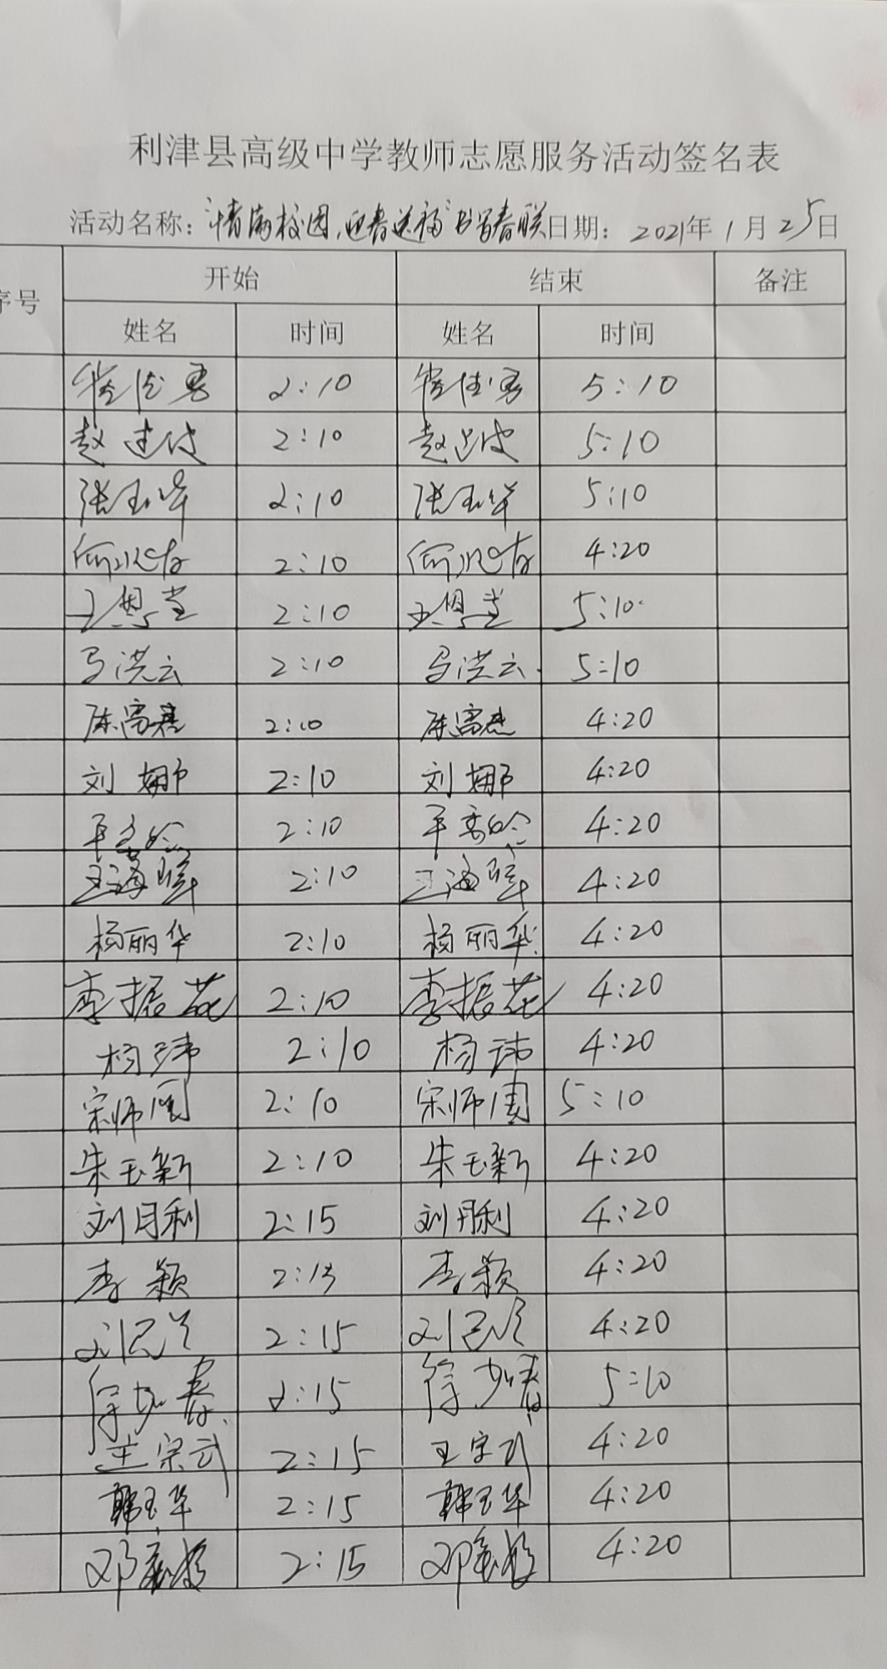 利津县高级中学教师志愿服务活动签名表
活动名称:"情满校园,迎春送福"书写春联 日期: 2021年1月25日
序号 开始 结束 备注
姓名 时间 姓名 时间
2:10 5:10
赵建波 2:10 赵建波 5:10
张玉华 2:10 张玉华 5:10
2:10 4:20
王思堂 2:10 王思堂 5:10
马洪云 2:10 马洪云 5:10
2:10 4:20
刘娜 2:10 刘娜 4:20
2:10 4:20
王海 2:10 王海 4:20
杨丽华 2:10 杨丽华 4:20
李振花 2:10 李振花 4:20
杨玮 2:10 杨玮 4:20
宋师 2:10 宋师 5:10
朱玉新 2:10 朱玉新 4:20
刘月利 2:15 刘月利 4:20
李颖 2:15 李颖 4:20
刘 2:15 刘 4:20
徐如春 2:15 徐如春 5:10
王宗武 2:15 王宗武 4:20
韩玉华 2:15 韩玉华 4:20
邓 2:15 邓 4:20